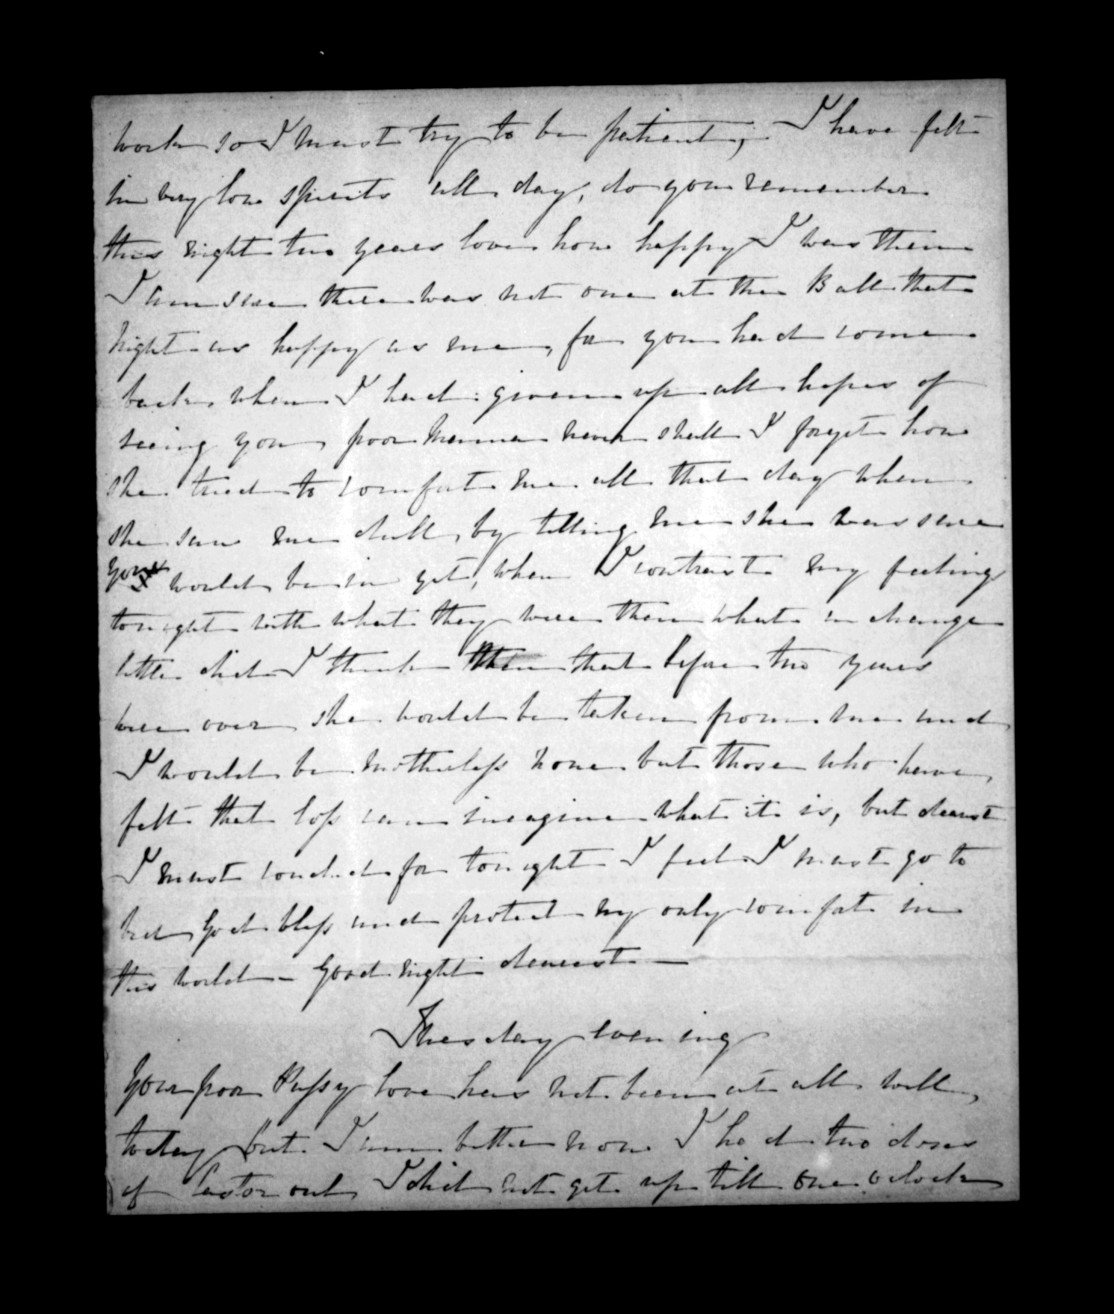 work so I must try to be patient, I have felt
in very low spirits all day, do you remember
this night two years love how happy I was then
I am sure there was not one at the Ball that
night as happy as me, for you had come
back when I had given up all hopes of
seeing you, poor Mama never shall I forget how
she tried to comfort me all that day when
she saw me dull by telling me she was sure
you would be in yet, when I contrast my feelings
tonight with what they were then what a change
little did I think then that before two years
were over she would be taken from me and
I would be motherless none but those who have
felt that loss can imagine what it is, but dearest
I must conclude for tonight I feel I must go to
bed God bless and protect my only comfort in
this world - Good night dearest -
Tuesday evening
Your poor Pussy love has not been at all well,
today but I am better now I had two doses
of Castor oil I did not get up till one o'clock